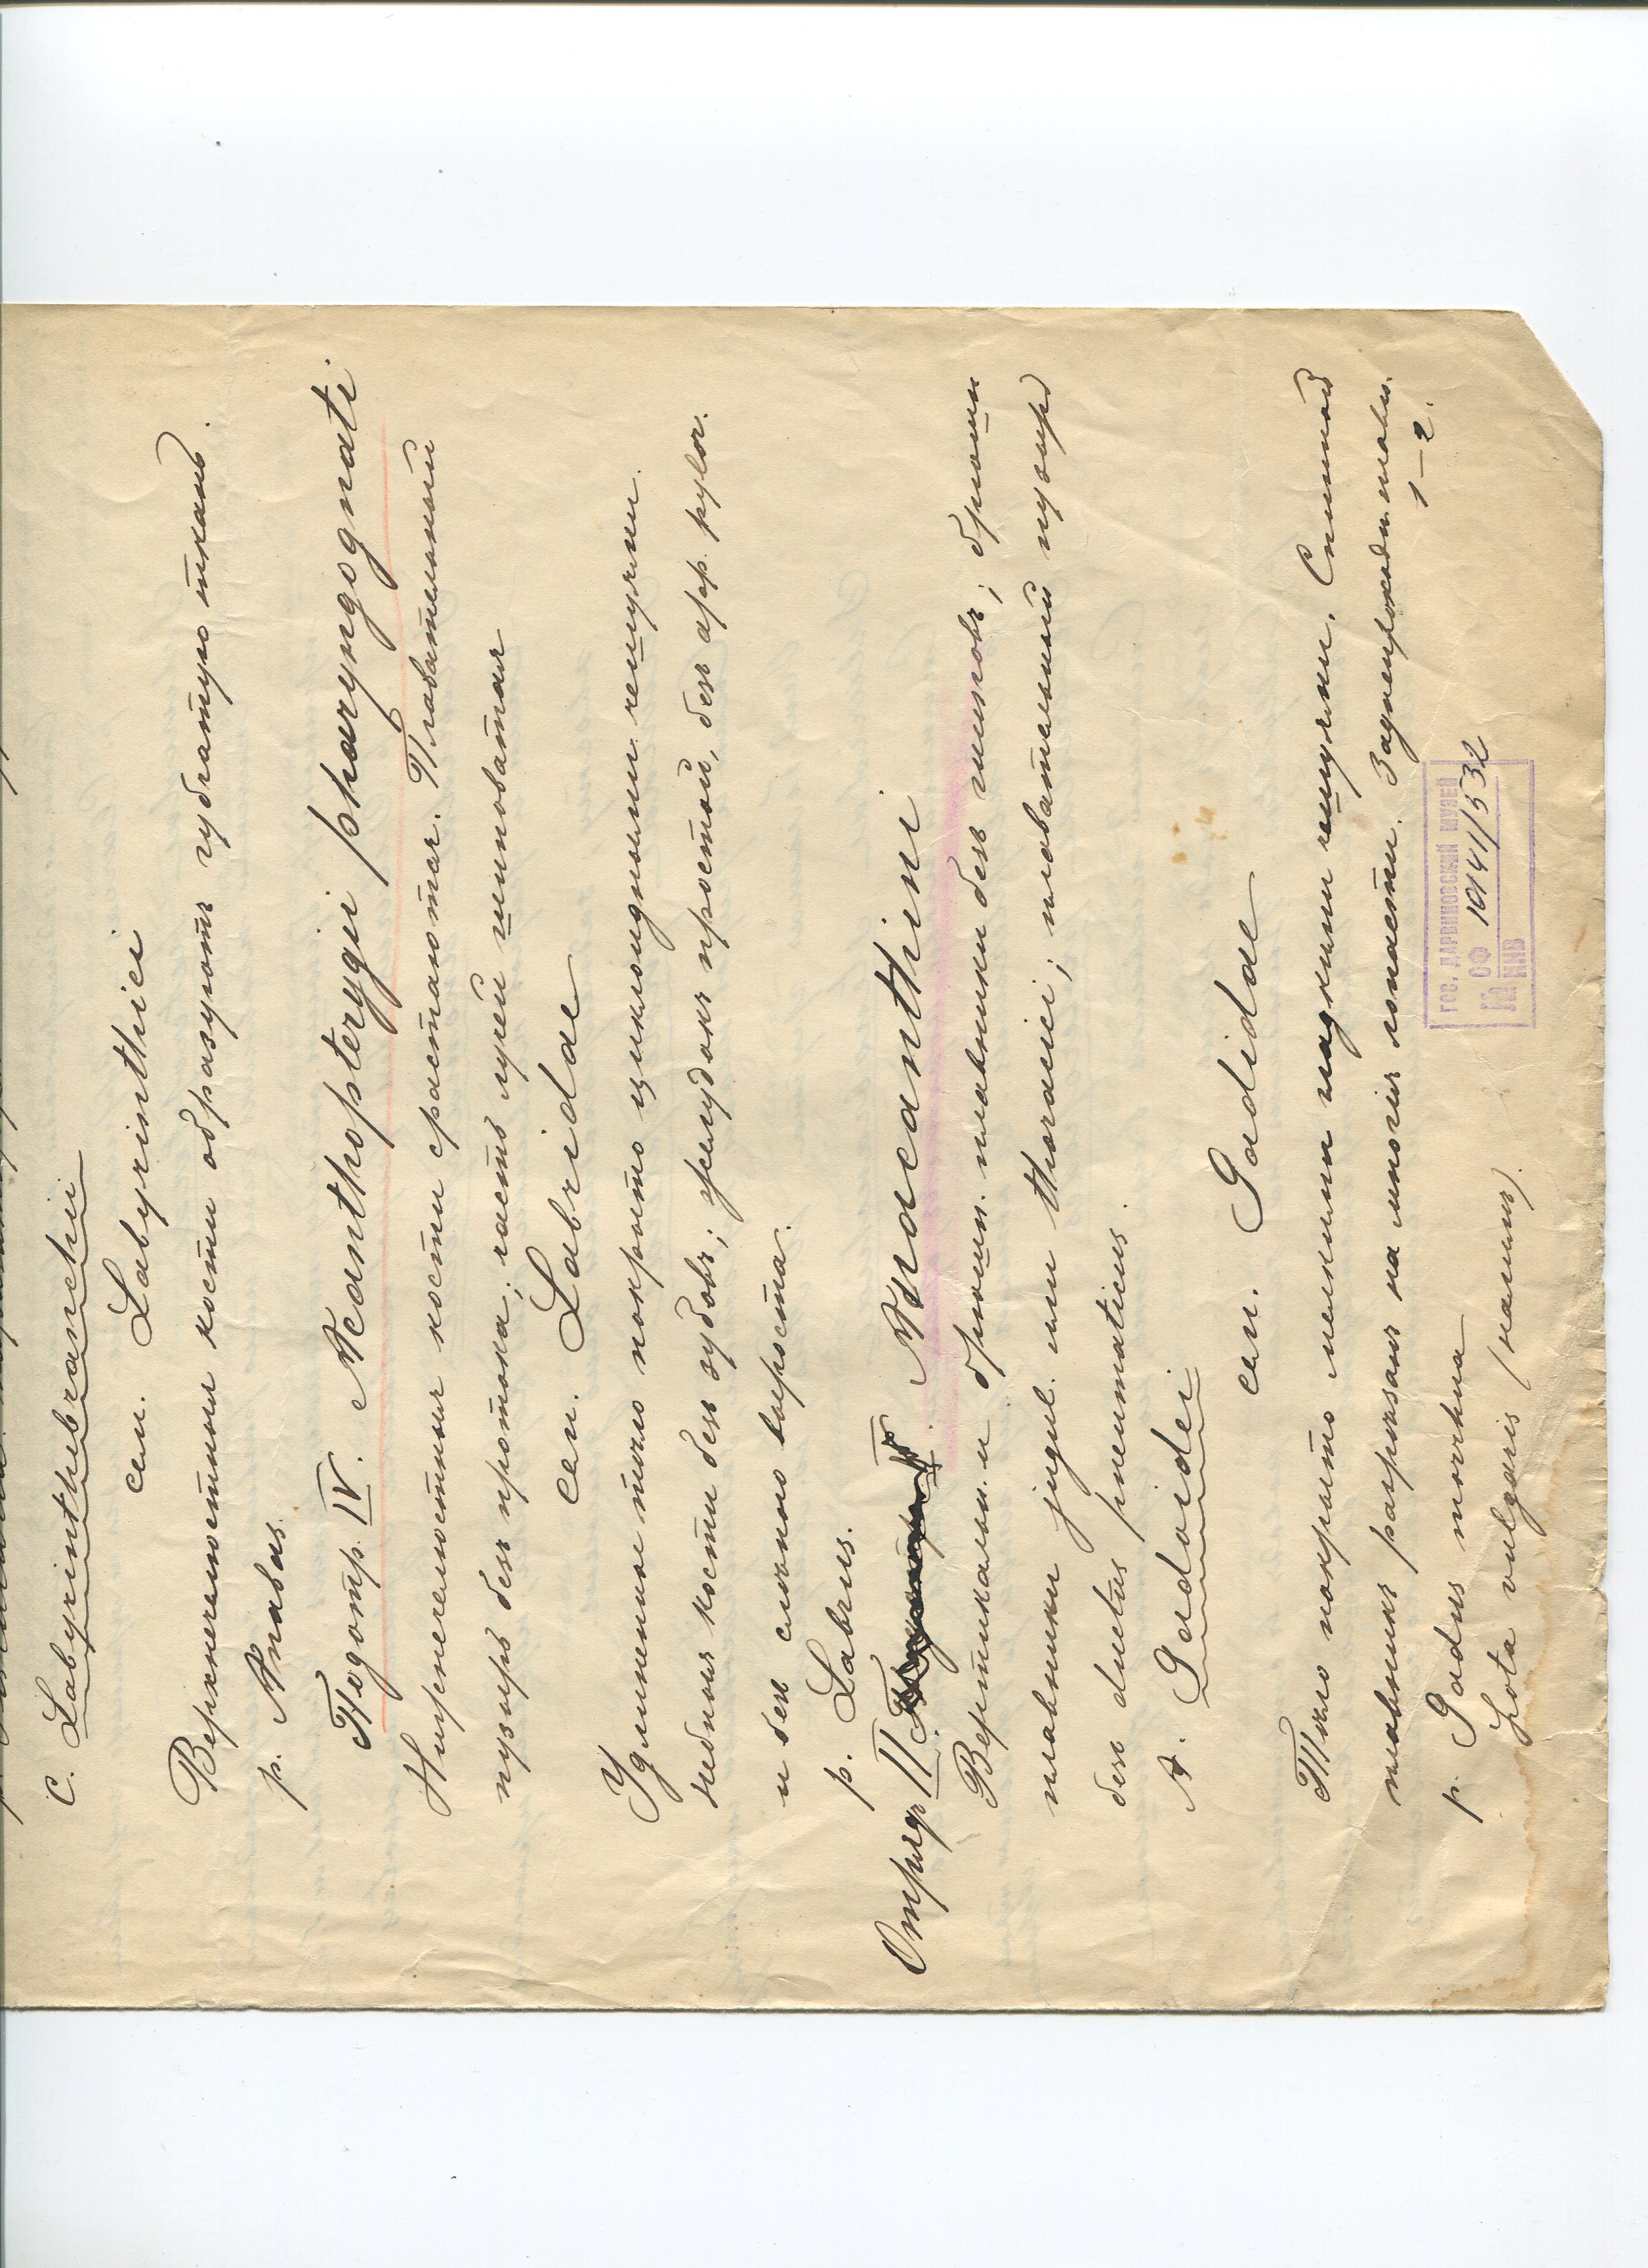 C. Labyrinthibranchii
сем. Labyrinthici
Верхнечелюстныя кости образуютъ губчатую ткань.
р. Anabas.
Подотр. IV. Acanthopterygii pharyngognati
Нижнечелюстныя кости срастаются. Плавательный
пузырь безъ протока; часть лучей шиповатая
сем. Labridae
Удлиненное тѣло покрыто циклоидными чешуями.
небныя кости безъ зубовъ; желудокъ простой, безъ app. pylor.
и безъ слѣпого выроста.
р. Labrus.
Отрядъ II. Anacanthini
Вертикальн. и брюшн. плавники безъ шиповъ; брюшн
плавники jugul. или thoracici; плавательный пузырь
безъ ductus pneumaticus.
A. Gadoidei
сем. Gadidae
Тѣло покрыто мелкими гладкими чешуями. Спинной
плавникъ разрѣзанъ на многія лопасти.
1—2.
р. Gadus morrhua
Lota vulgaris (налимъ).
ГОС. ДАРВИНОВСКИЙ МУЗЕЙ
№ ОФ 10141/532
№ ИНВ